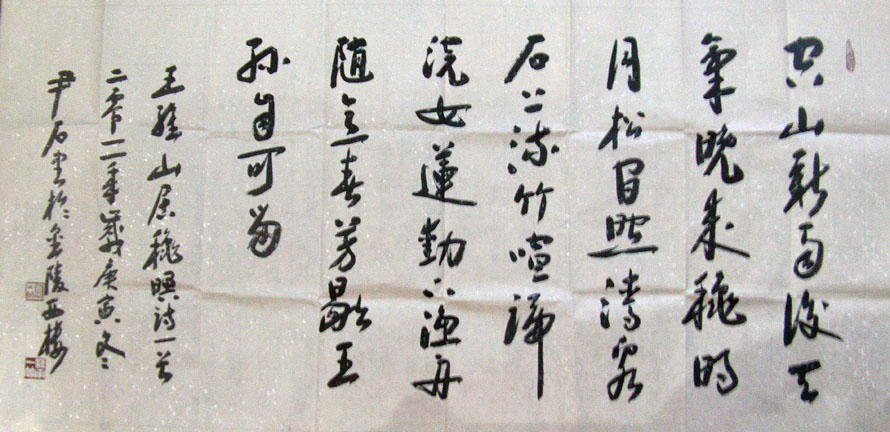 空山新雨後天
氣晚來穐明
月松間照清泉
石上流竹喧歸
浣女蓮動下漁舟
随意春芳歇王
孫自可留
王維山居穐暝詩一首
二零一一年歲庚寅冬
尹石書於金陵西樓